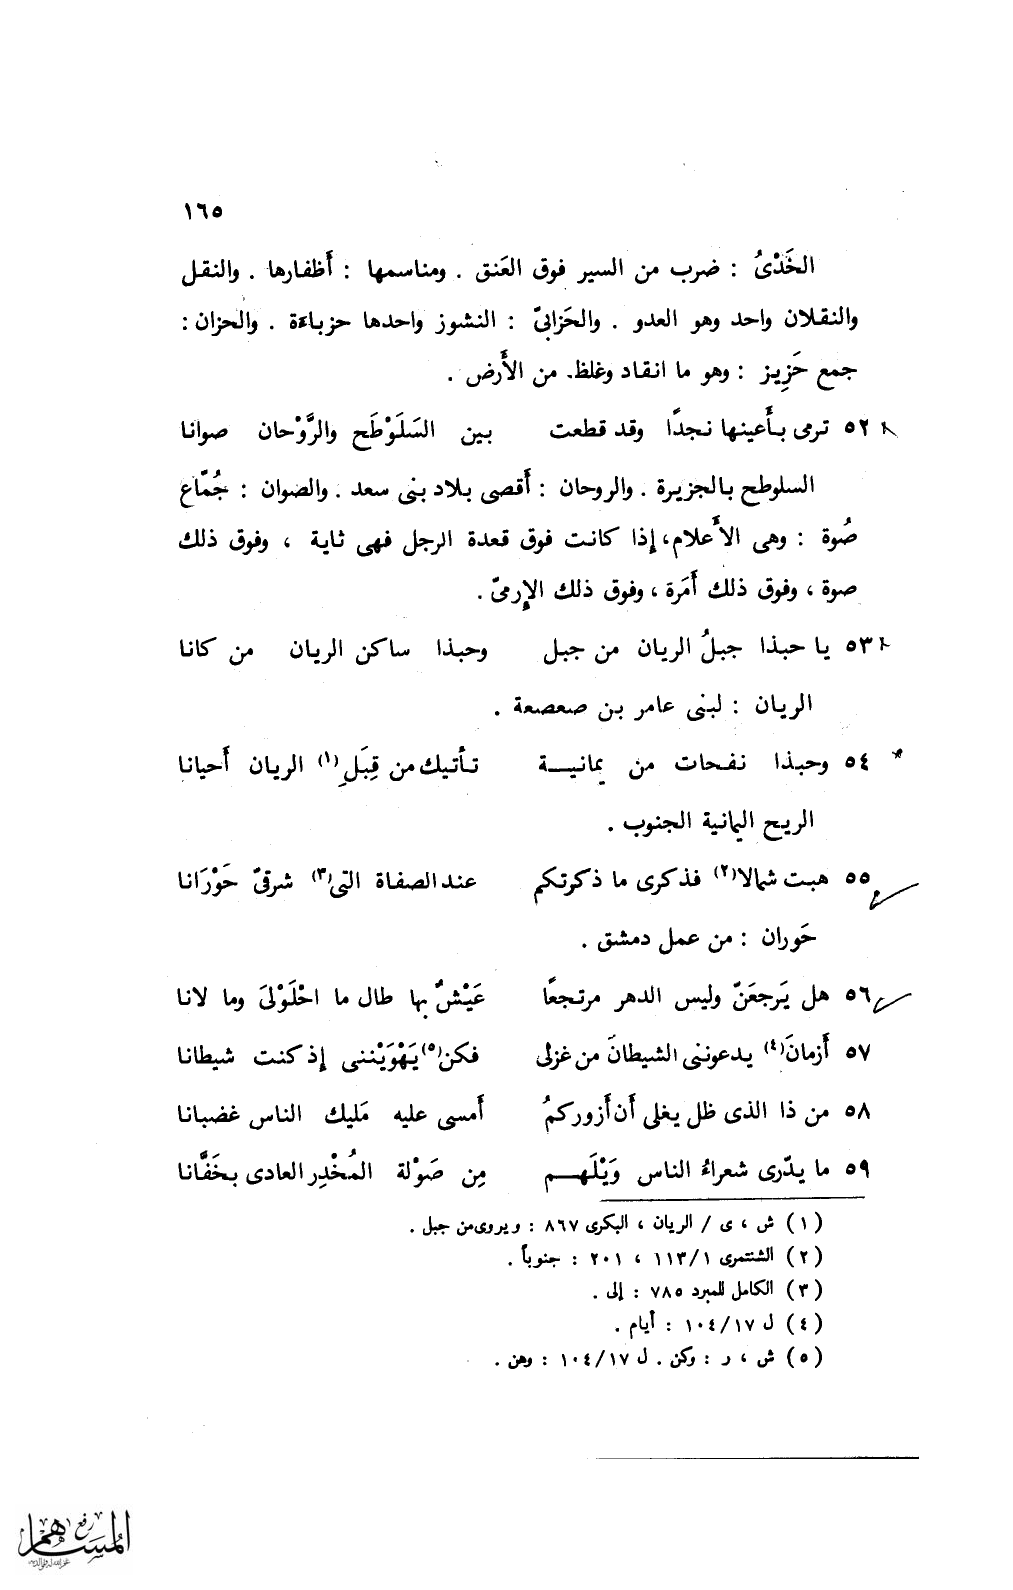 ١٦٥
الخَدْىُ : ضرب من السير فوق العَنق . ومناسمها : أَظفارها . والنقل
والنقلان واحد وهو العدو . والحَزابىّ : النشوز واحدها حزباءة . والحزان :
جمع حَزِيز : وهو ما انقاد وغلظ من الأَرض .
٥٢ ترمى بأَعينها نجدًا وقد قطعت بين السَلَوْطَح والرَّوْحان صوانا
السلوطح بالجزيرة . والروحان : أَقصى بلاد بنى سعد . والصوان : جُمّاع
صُوة : وهى الأَعلام، إذا كانت فوق قعدة الرجل فهى ثاية ، وفوق ذلك
صوة ، وفوق ذلك أَمَرة ، وفوق ذلك الإرمىّ .
٥٣ يا حبذا جبلُ الريان من جبل وحبذا ساكن الريان من كانا
الريان : لبنى عامر بن صعصعة .
٥٤ وحبذا نفحات من يمانيـــة تأتيك من قِبَلِ(١) الريان أَحيانا
الريح اليمانية الجنوب .
٥٥ هبت شمالا(٢) فذكرى ما ذكرتكم عند الصفاة التى(٣) شرقىّ حَوْرَانا
حَوران : من عمل دمشق .
٥٦ هل يَرجعَنّ وليس الدهر مرتجعًا عَيْشٌ بها طال ما احْلَوْلىَ وما لانا
٥٧ أَزمانَ(٤) يدعوننى الشيطانَ من غزلى فكن(٥) يَهْوَيْننى إذ كنت شيطانا
٥٨ من ذا الذى ظل يغلى أَن أَزوركمُ أَمسى عليه مَليك الناس غضبانا
٥٩ ما يدّرى شعراءُ الناس وَيْلَهـــم مِن صَوْلة المُخْدِر العادى بخَفَّانا
(١) ش ، ى / الريان ، البكرى ٨٦٧ : ويروى من جبل .
(٢) الشنتمرى ١١٣/١ ، ٢٠١ : جنوباً .
(٣) الكامل للمبرد ٧٨٥ : إلى .
(٤) ل ١٠٤/١٧ : أيام .
(٥) ش ، ر : وكن . ل ١٠٤/١٧ : وهن .
رفع
المساهم